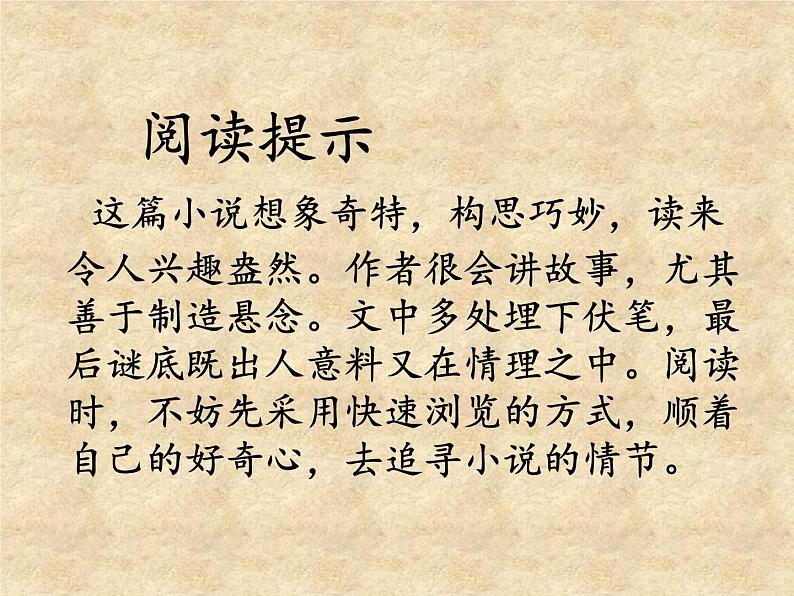 阅读提示
这篇小说想象奇特，构思巧妙，读来
令人兴趣盎然。作者很会讲故事，尤其
善于制造悬念。文中多处埋下伏笔，最
后谜底既出人意料又在情理之中。阅读
时，不妨先采用快速浏览的方式，顺着
自己的好奇心，去追寻小说的情节。